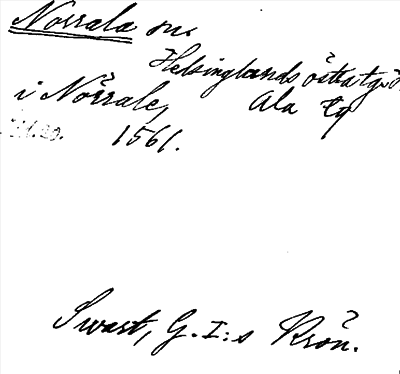 Norrala sn.
Helsinglands östra tg.
i Nörrale, Ala tg
1561.
Swart, G. I:s Krön.